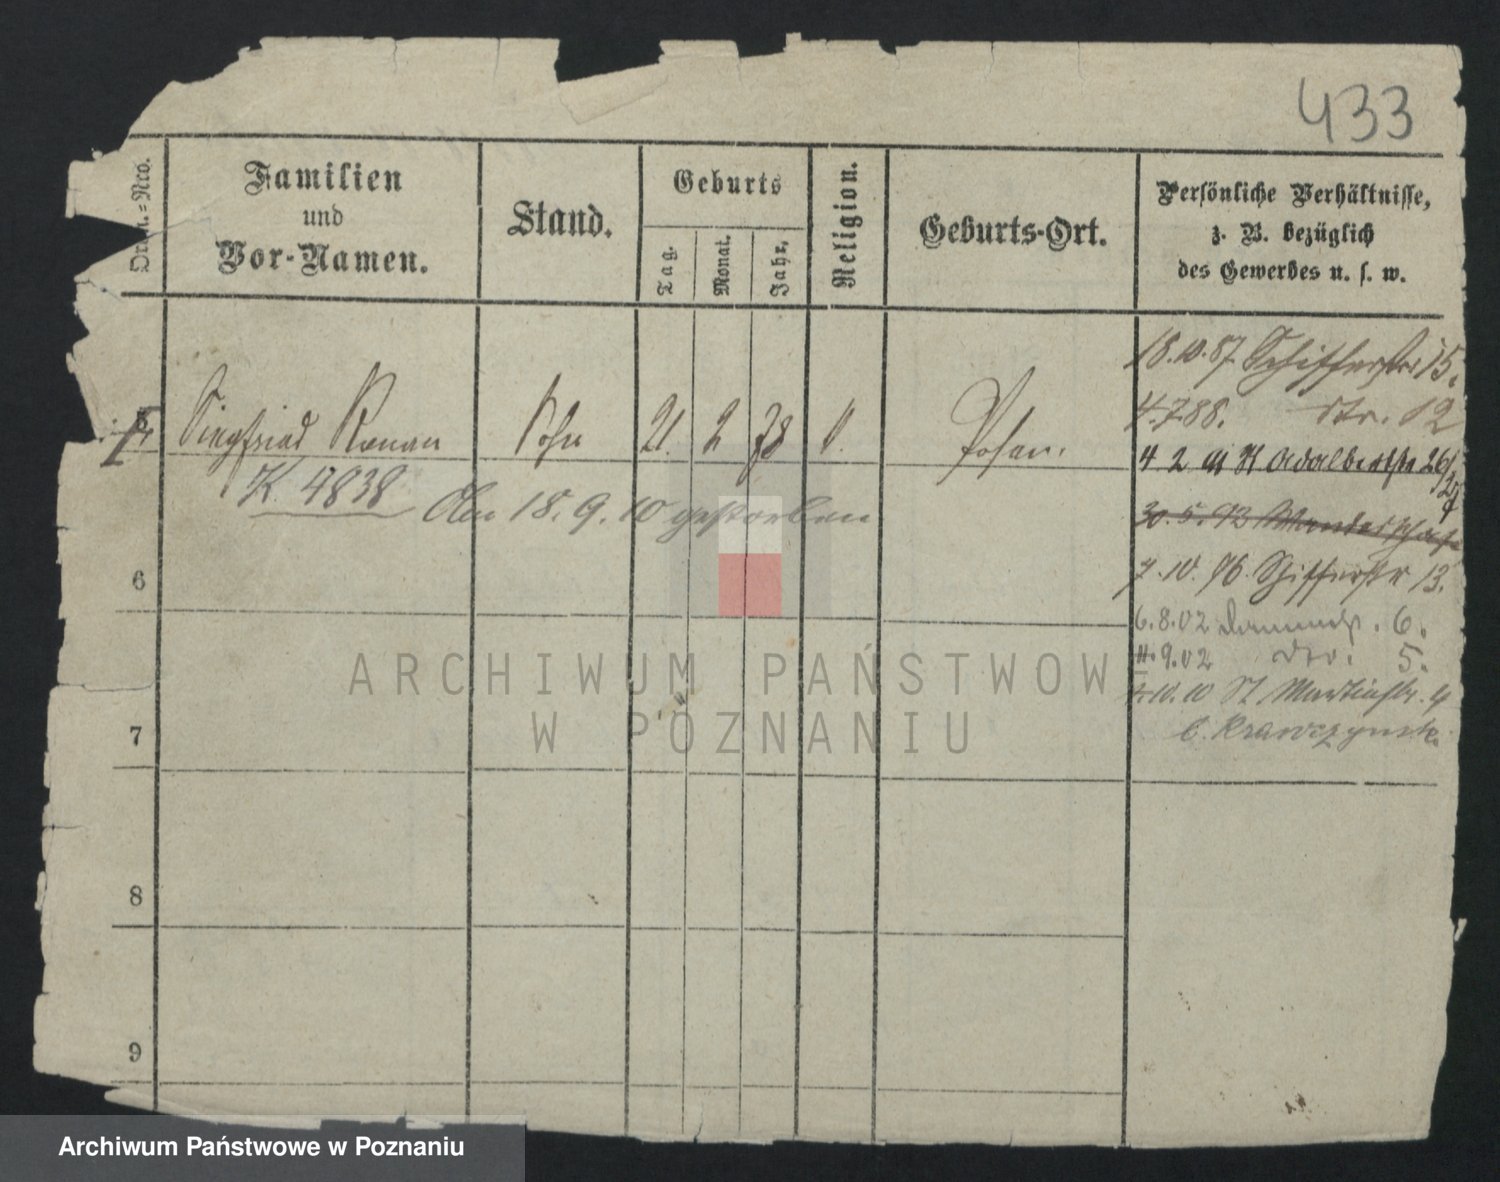 433
Ordn.=Nro.
Familien
und
Vor-Namen.
Stand.
Geburts
Tag.
Monat.
Jahr.
Religion.
Geburts-Ort.
Persönliche Verhältnisse,
z. B. bezüglich
des Gewerbes u. s. w.
Siegfried Roman Sohn 21. 2 78 Posen.
K. 4838
Am 18. 9. 10 gestorben
18.10.87. Schifferstr 15.
4.7.88. dto. 12
4 2 91 St Adalbertstr 26/27
30.5.92 Wanderschaft
7.10.96. Schifferstr 13.
6.8.02 6.
9.02 dto. 5.
10.10 St Martinstr. 4
b. Krawczynski
6
7
8
9
ARCHIWUM PAŃSTWOWE
W POZNANIU
Archiwum Państwowe w Poznaniu